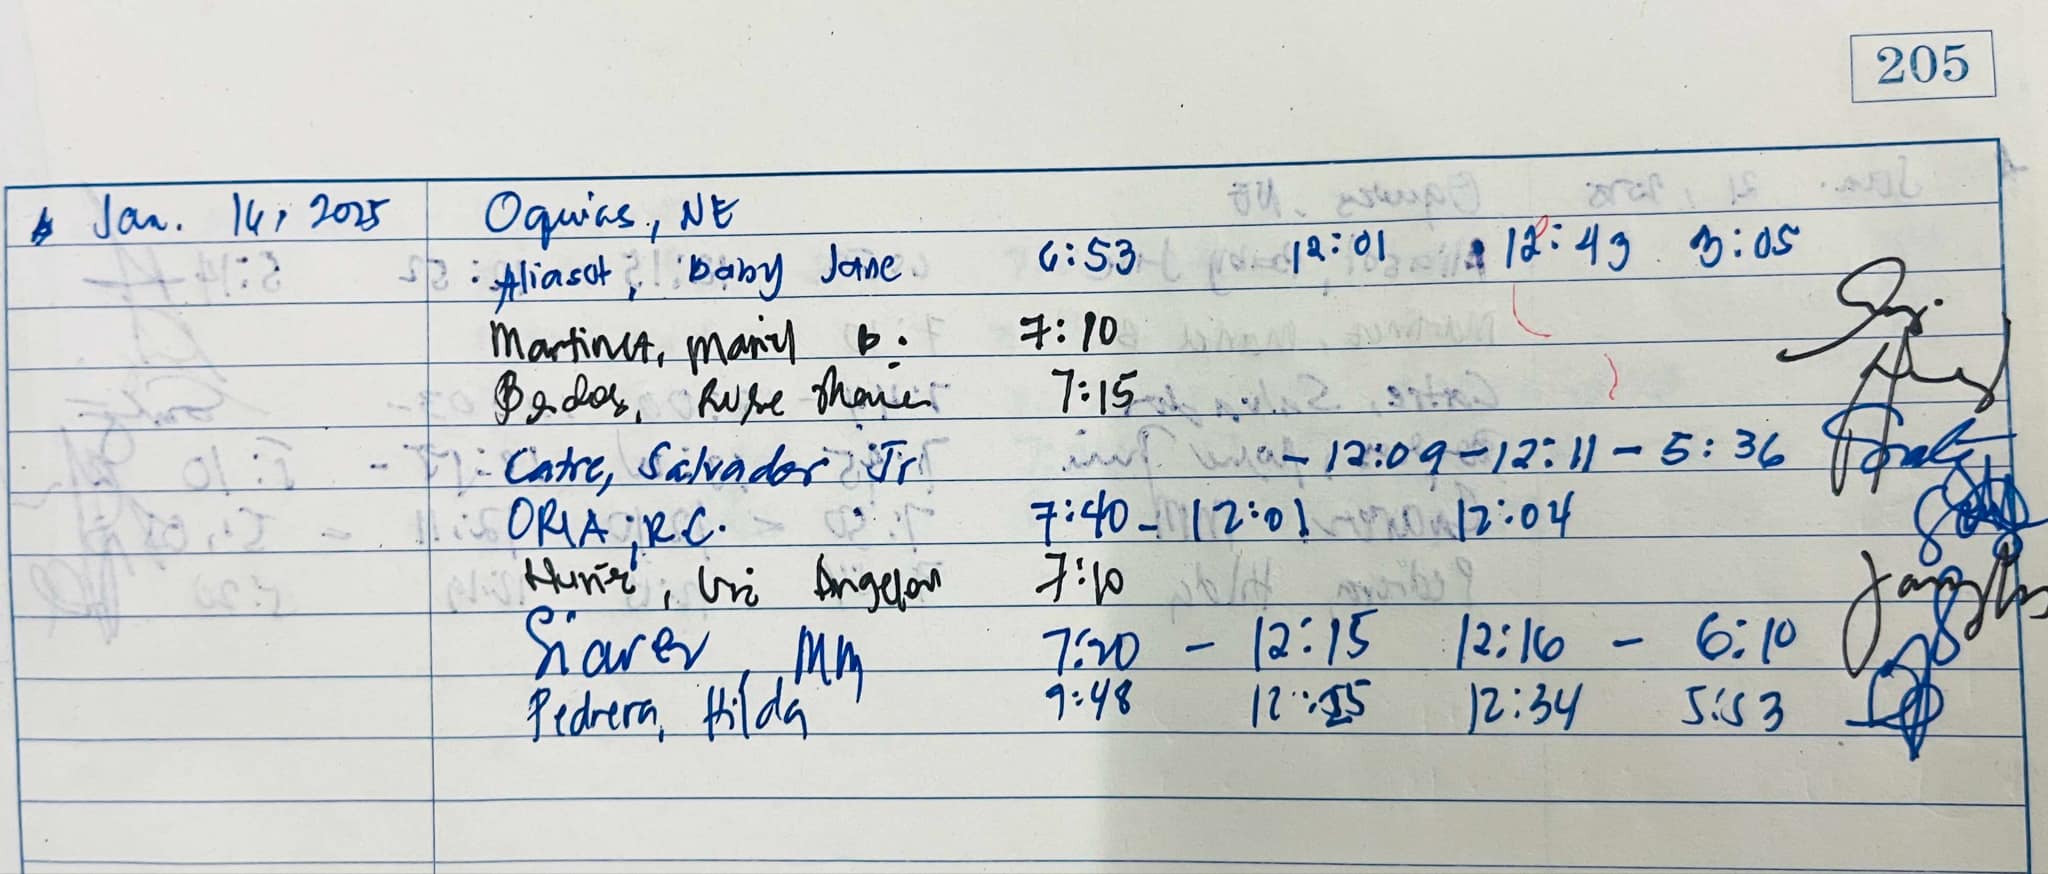 205
Jan. 16, 2025 Oquias, NE
Aliasot, Baby Jane 6:53 12:01 12:43 3:05
Martinez, Mariel B. 7:10
Bados, Rose Marie 7:15
Catre, Salvador Jr - 12:09 - 12:11 - 5:36
ORIA, R.C. 7:40 - 12:01 12:04
7:10
MM 7:20 - 12:15 12:16 - 6:10
Pedrera, Hilda 9:48 12:25 12:34 5:53